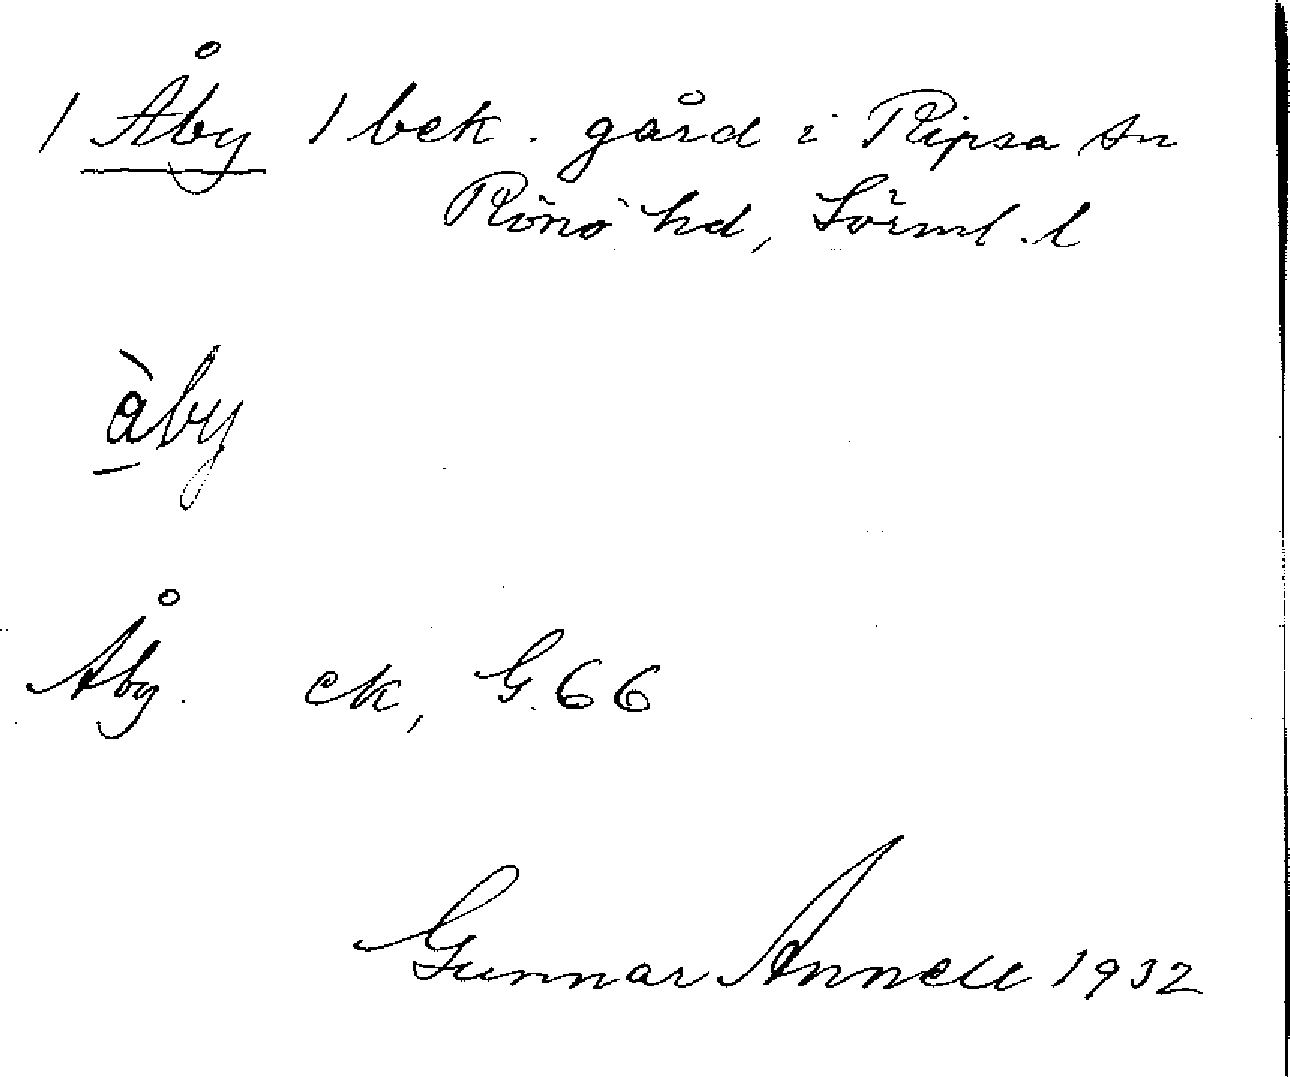 / Åby / bek. gård i Ripsa sn
Rönö hd, Sörml. l
åby
Åby. ek, G. 66
Gunnar Annell 1932